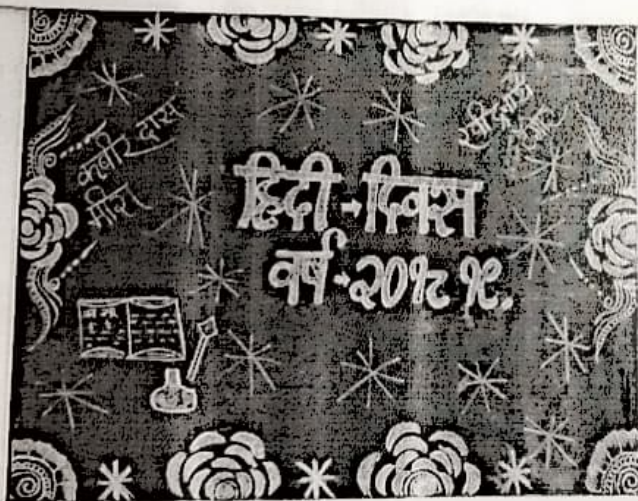 कबीर दास
मीरा
रवींद्रनाथ
टैगोर
हिंदी-दिवस
वर्ष-२०१८ १९.